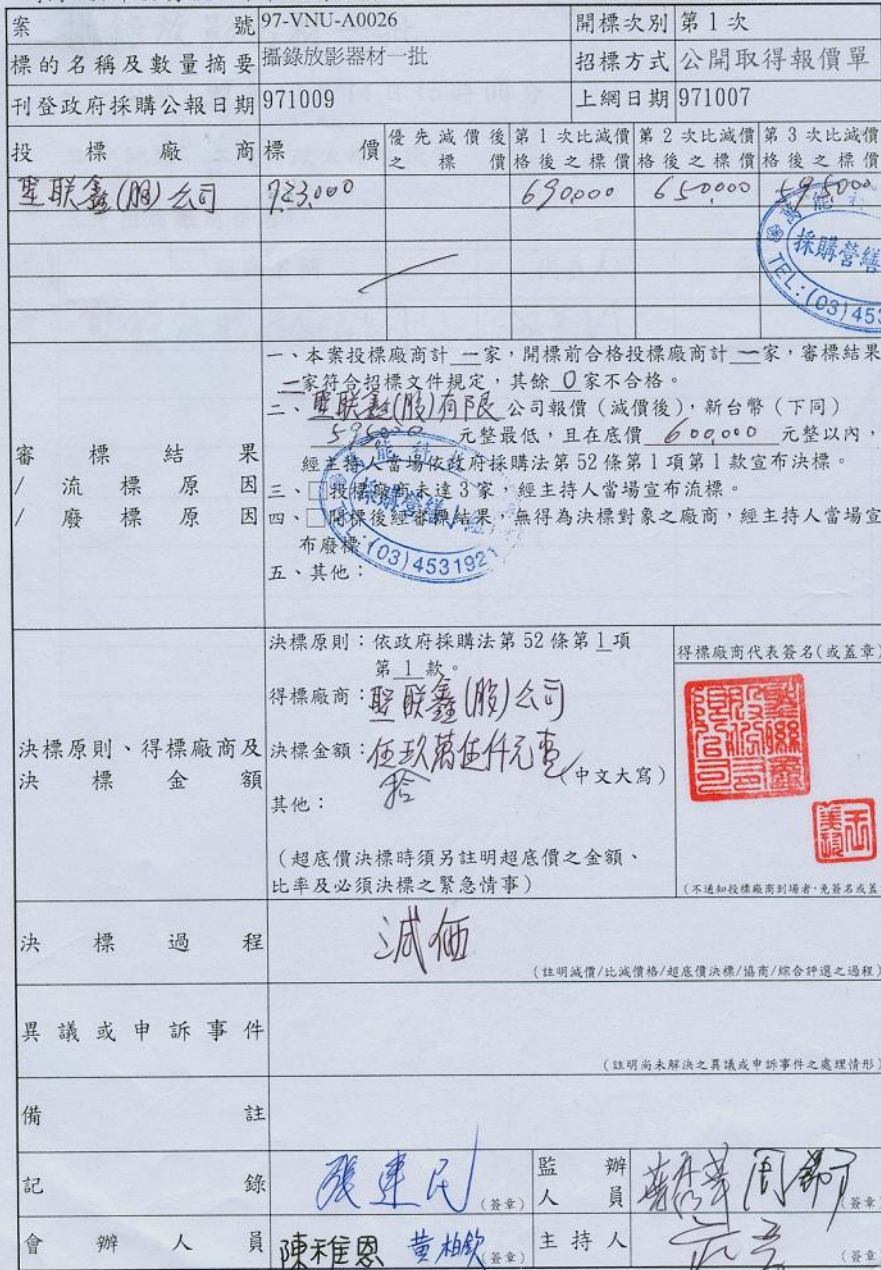 案號 97-VNU-A0026 開標次別 第 1 次
標的名稱及數量摘要 攝錄放影器材一批 招標方式 公開取得報價單
刊登政府採購公報日期 971009 上網日期 971007
投標廠商 標價 優先減價後之標價 第 1 次比減價格後之標價 第 2 次比減價格後之標價 第 3 次比減價格後之標價
聖联鑫(股)公司 723,000 690,000 650,000 595,000
採購營繕
TEL:(03)453
審標結果
/流標原因
/廢標原因
一、本案投標廠商計 一 家,開標前合格投標廠商計 一 家,審標結果
一家符合招標文件規定,其餘 0 家不合格。
二、聖联鑫(股)有限 公司報價(減價後),新台幣(下同)
595,000 元整最低,且在底價 600,000 元整以內,
經主持人當場依政府採購法第 52 條第 1 項第 1 款宣布決標。
三、□投標廠商未達 3 家,經主持人當場宣布流標。
四、□開標後經審標結果,無得為決標對象之廠商,經主持人當場宣
布廢標
五、其他:
採購營繕
(03)4531921
決標原則、得標廠商及
決標金額
決標原則:依政府採購法第 52 條第 1 項
第 1 款。
得標廠商:聖联鑫(股)公司
決標金額:伍拾玖萬伍仟元整
(中文大寫)
其他:
(超底價決標時須另註明超底價之金額、
比率及必須決標之緊急情事)
得標廠商代表簽名(或蓋章)
(不通知投標廠商到場者,免簽名或蓋
決標過程 減価
(註明減價/比減價格/超底價決標/協商/綜合評選之過程)
異議或申訴事件
(註明尚未解決之異議或申訴事件之處理情形)
備註
記錄 張建民 (簽章) 監辦人員 (簽章)
會辦人員 陳稚恩 黃柏欽 (簽章) 主持人 (簽章)